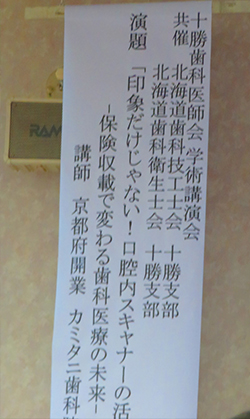 十勝歯科医師会 学術講演会
共催 北海道歯科技工士会 十勝支部
北海道歯科衛生士会 十勝支部
演題 「印象だけじゃない！口腔内スキャナーの活
−保険収載で変わる歯科医療の未来−
講師 京都府開業 カミタニ歯科
RAM